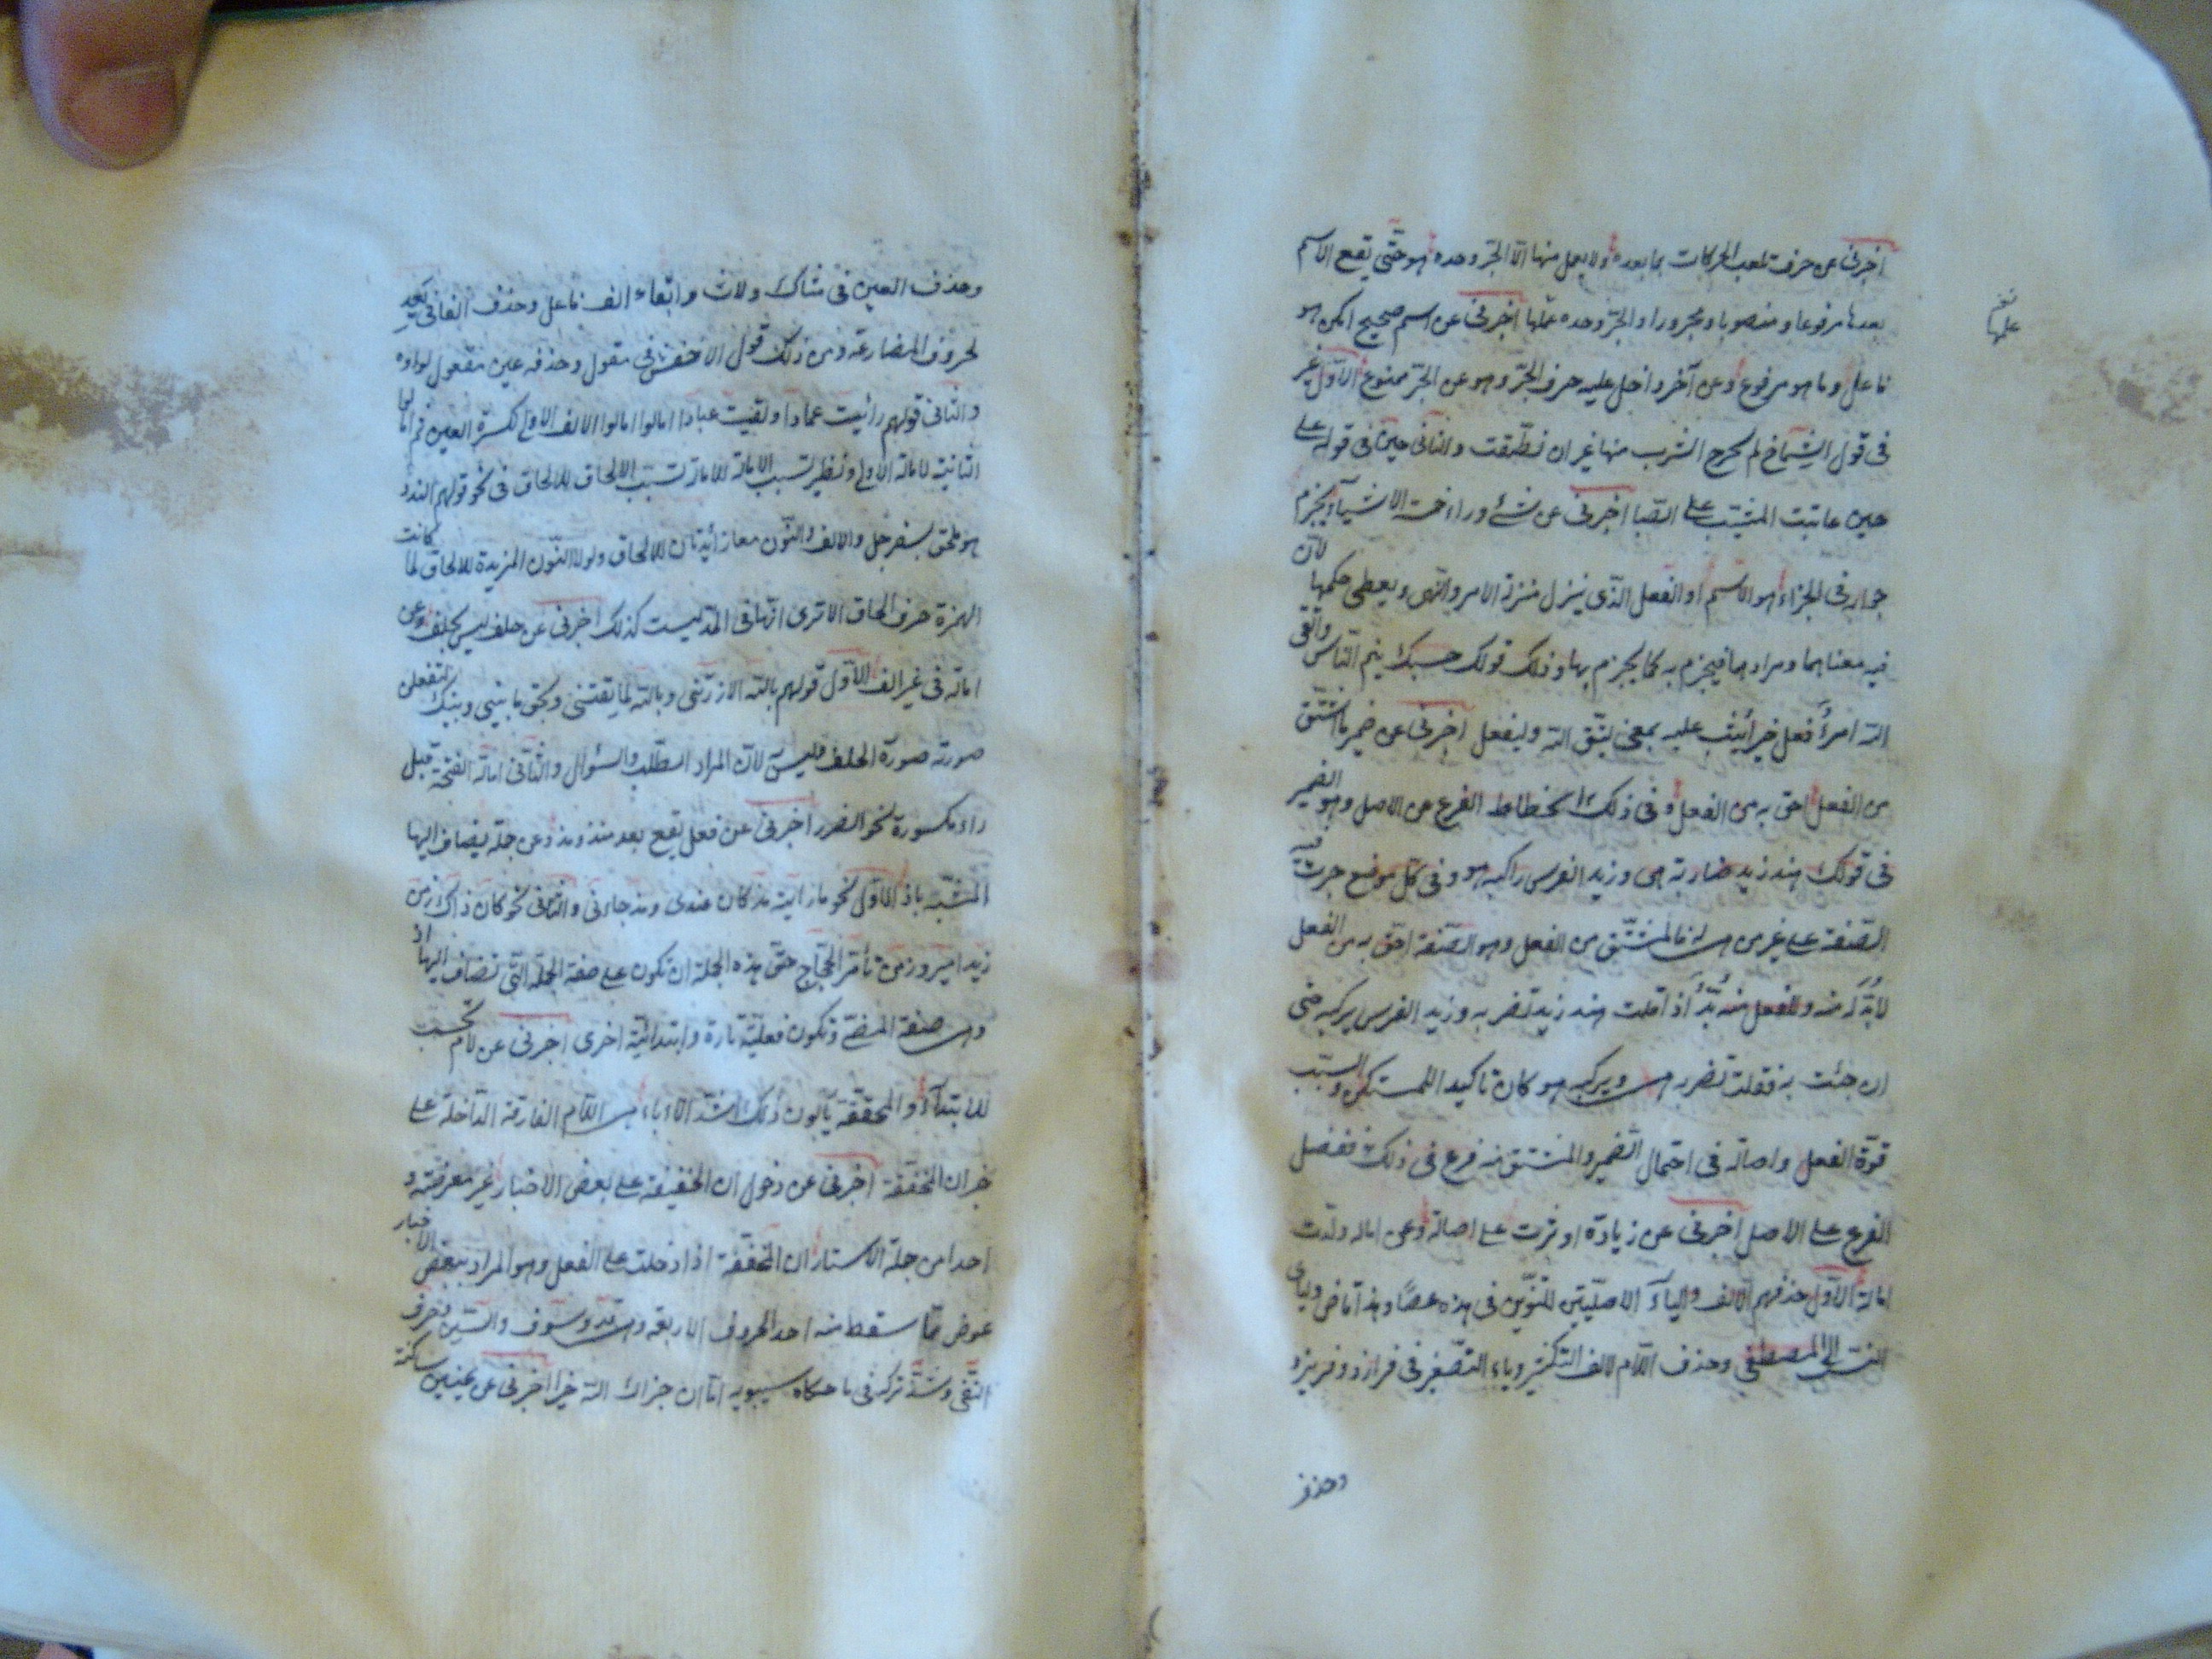 اخبرنى عن حرف تلعب الحركات بما بعده ولا يعمل منها الا الجر وحده هو حتّى يقع الاسم
بعدها مرفوعا ومنصوبا ومجرورا والجر وحده عملها اخبرنى عن اسم صحيح امكن هو
فاعل وما هو مرفوع وعن آخر داخل عليه حرف الجرّ وهو عن الجرّ ممنوع الاوّل غير
فى قول الشماخ لم الشرب منها غير ان نطقت والثانى حين فى قوله على
حين عاتبت المشيب على الصبا اخبرنى عن شئ وراء خمسة الاشياء يجزم
جوابه فى الجزاء هو الاسم او الفعل الذى ينزل منزلة الامر والنهى ويعطى حكمهما لانّ
فيه معناهما ومرادهما فيجزم به كما يجزم بهما وذلك قولك حسبك ينم النّاس واتّقى
الله امرأ فعل خيرا يثب عليه بمعنى ليتّق الله وليفعل اخبرنى عن ضمير ما اشتق
من الفعل احق به من الفعل وفى ذلك انحطاط الفرع عن الاصل وهو الضمير
فى قولك هند زيد ضاربته هى وزيد الفرس راكبه هو وفى كل موضع جرت فيه
الصفة على غير من هى له فالمشتق من الفعل وهو الصّفة احق به من الفعل
لابدّ له منه وللفعل منه بدّ اذا قلت هند زيد تضربه وزيد الفرس يركبه حتى
ان جئت به فقلت تضربه هى ويركبه هو كان تاكيدا للمستكن والسبب
قوّة الفعل واصالته فى احتمال الضمير والمشتق منه فرع فى ذلك ففضل
الفرع على الاصل اخبرنى عن زيادة اوثرت على اصالة وعن امالة ولّدت
امالة الاوّل حذفهم الالف والياء الاصليّتين للتنوين فى هذه عصًا وهذا قاض ولياى
النسب الى المصطفى وحذف اللام لالف التكسير وياء التصغير فى فرازد وفريزد
نعم
عملها
وحذف
وحذف العين فى شاك ولاث وابقاء الف فاعل وحذف الفا فى يعد
لحروف المضارعة ومن ذلك قول الاخفش فى مقول وحذفه عين مفعول لواوه
والثانى قولهم رائيت عمادا ولقيت عبادا امالوا الالف الاولى لكسرة العين ثم امالوا
الثانية لامالة الاولى ونظير تسبب الامالة للامالة تسبب الالحاق للالحاق فى نحو قولهم الندد
هو ملحق بسفرجل والالف والنّون معا زائدتان للالحاق ولولا النّون المزيدة للالحاق لما كانت
الهمزة حرف الحاق الا ترى انّها فى المدّ ليست كذلك اخبرنى عن حلف ليس بحلف وعن
امالة فى غير الف الاوّل قولهم بالله الا زرتنى وبالله لما لقيتنى وبحق ما بينى وبينك لتفعلن
صورته صورة الحلف وليس به لانّ المراد الطلب والسؤال والثانى امالة الفتحة قبل
راء مكسورة نحو الضرر اخبرنى عن فعل يقع بعد منذ ومذ وعن جملة يضاف اليها
المشبّه باذ الاوّل نحو ما رايته مذ كان عندى ومذ جاءنى والثانى نحو كان ذاك زمن
زيد امير وزمن تأمّر الحجّاج حقّ هذه الجملة ان تكون على صفة الجملة التى تضاف اليها اذ
وهى صفة المضىّ وتكون فعليّة تارة وابتدائيّة اخرى اخبرنى عن لام تحسب
للابتداء والمحققة يأبون ذلك اشدّ الاباء هى اللام الفارقة الدّاخلة على
خبر ان المخففة اخبرنى عن دخول ان الخفيفة على بعض الاخبار غير معرفته و
احدا من جملة الاستار ان المخففة اذا دخلت على الفعل وهو المراد ببعض الاخبار
عوض ممّا سقط منه احد الحروف الاربعة وهى قد وسوف والسّين وحرف
النّفى وشذّ تركه فى ما حكاه سيبويه اما ان جزاك الله خيرا اخبرنى عن عينين ساكنة